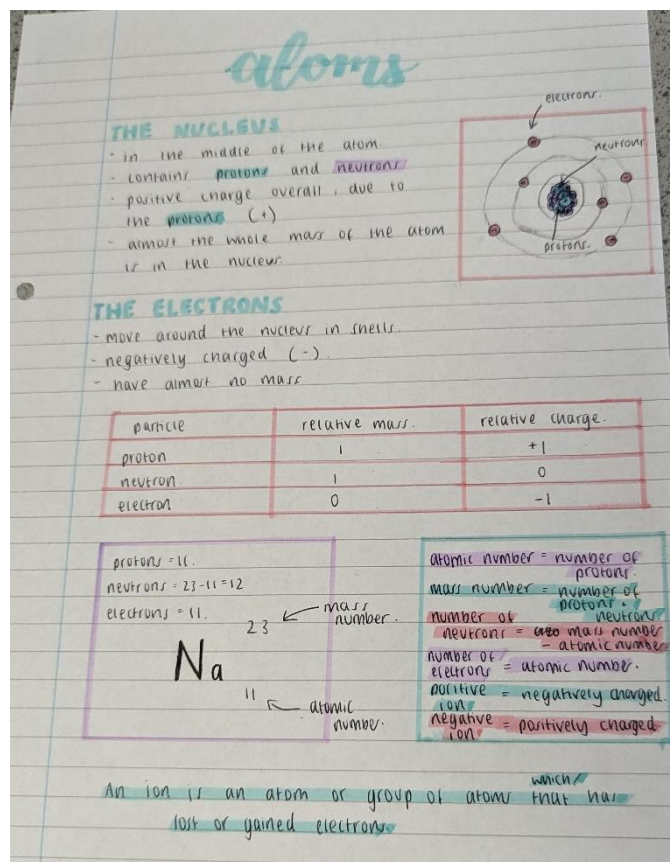 atoms
THE NUCLEUS
- in the middle of the atom
- contains protons and neutrons
- positive charge overall, due to
the protons (+)
- almost the whole mass of the atom
is in the nucleus.
electrons.
neutrons.
protons.
THE ELECTRONS
- move around the nucleus in shells.
- negatively charged (-).
- have almost no mass
particle relative mass. relative charge.
proton 1 +1
neutron 1 0
electron 0 -1
protons = 11.
neutrons = 23-11=12
electrons = 11.
23
mass
number.
Na
11
atomic
number.
atomic number = number of
protons.
mass number = number of
protons +
neutrons
number of
neutrons = mass number
- atomic number
number of
electrons = atomic number.
positive
ion = negatively charged.
negative
ion = positively charged
which
An ion is an atom or group of atoms that has
lost or gained electrons